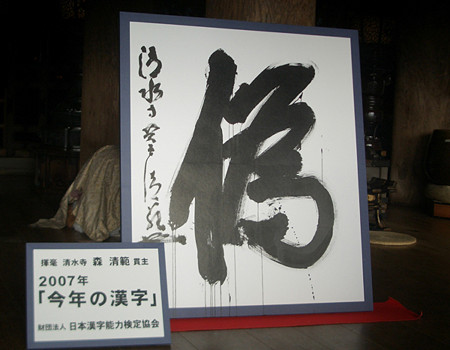 偽
清水寺貫主清範
揮毫 清水寺 森 清範 貫主
2007年
「今年の漢字」
財団法人 日本漢字能力検定協会